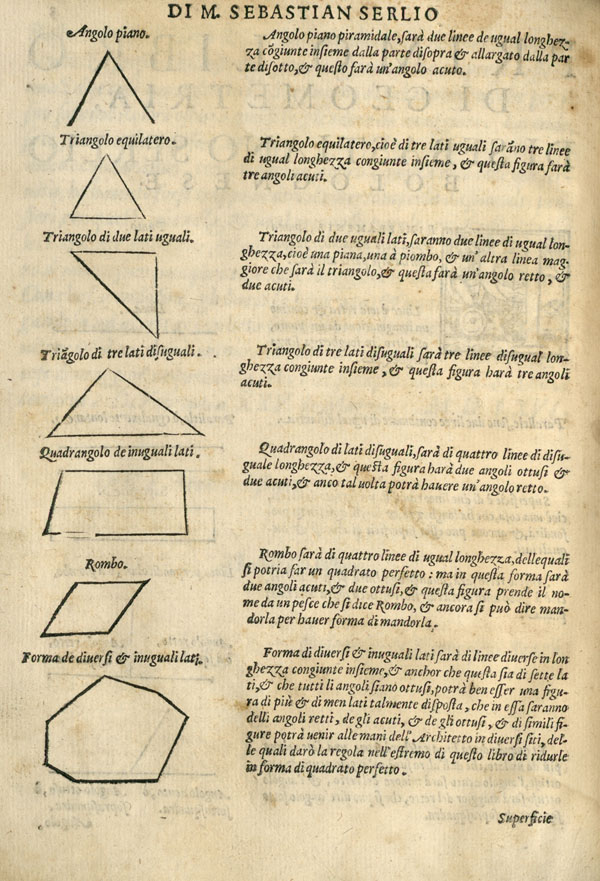 DI M. SEBASTIAN SERLIO
Angolo piano.
Angolo piano piramidale, sarà due linee de ugual longhez-
za cõgiunte insieme dalla parte disopra & allargato dalla par
te disotto, & questo farà un'angolo acuto.
Triangolo equilatero.
Triangolo equilatero, cioè di tre lati uguali sarãno tre linee
di ugual longhezza congiunte insieme, & questa figura farà
tre angoli acuti.
Triangolo di due lati uguali.
Triangolo di due uguali lati, saranno due linee di ugual lon-
ghezza, cioè una piana, una à piombo, & un' altra linea mag-
giore che farà il triangolo, & questa farà un'angolo retto, &
due acuti.
Triãgolo di tre lati disuguali.
Triangolo di tre lati disuguali sarà tre linee disugual lon-
ghezza congiunte insieme, & questa figura harà tre angoli
acuti.
Quadrangolo de inuguali lati.
Quadrangolo di lati disuguali, sarà di quattro linee di disu-
guale longhezza, & questa figura harà due angoli ottusi &
due acuti, & anco tal uolta potrà hauere un'angolo retto.
Rombo.
Rombo sarà di quattro linee di ugual longhezza, dellequali
si potria far un quadrato perfetto : ma in questa forma farà
due angoli acuti, & due ottusi, & questa figura prende il no-
me da un pesce che si dice Rombo, & ancora si può dire man-
dorla per hauer forma di mandorla.
Forma de diuersi & inuguali lati.
Forma di diuersi & inuguali lati sarà di linee diuerse in lon
ghezza congiunte insieme, & anchor che questa sia di sette la
ti, & che tutti li angoli siano ottusi, potrà ben esser una figu-
ra di più & di men lati talmente disposta, che in essa saranno
delli angoli retti, de gli acuti, & de gli ottusi, & di simili fi-
gure potrà uenir alle mani dell'Architetto in diuersi siti, del-
le quali darò la regola nell'estremo di questo libro di ridurle
in forma di quadrato perfetto.
Superficie